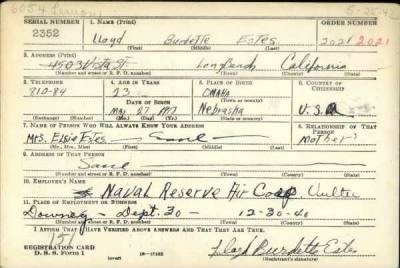 5-25-42
SERIAL NUMBER 1. NAME (Print) ORDER NUMBER
2352 Lloyd Burdette Estes 2021 2021
(First) (Middle) (Last)
2. ADDRESS (Print)
4503 Vista St. Long Beach California
(Number and street or R. F. D. number) (Town) (County) (State)
3. TELEPHONE 4. AGE IN YEARS 5. PLACE OF BIRTH 6. COUNTRY OF CITIZENSHIP
810-84 23 Omaha
DATE OF BIRTH (Town or county)
Nebraska U.S.A
(Mo.) (Day) (Yr.) (State or country)
7. NAME OF PERSON WHO WILL ALWAYS KNOW YOUR ADDRESS 8. RELATIONSHIP OF THAT PERSON
Mrs. Elsie Estes Same Mother
(Mr., Mrs., Miss) (First) (Middle) (Last)
9. ADDRESS OF THAT PERSON
Same
(Number and street or R. F. D. number) (Town) (County) (State)
10. EMPLOYER'S NAME
Naval Reserve Air Vultee
11. PLACE OF EMPLOYMENT OR BUSINESS
Downey - Dept. 30 - 12-30-40
(Number and street or R. F. D. number) (Town) (County) (State)
I AFFIRM THAT I HAVE VERIFIED ABOVE ANSWERS AND THAT THEY ARE TRUE.
REGISTRATION CARD
D. S. S. Form 1 (over) Lloyd Burdette Estes
(Registrant's signature)